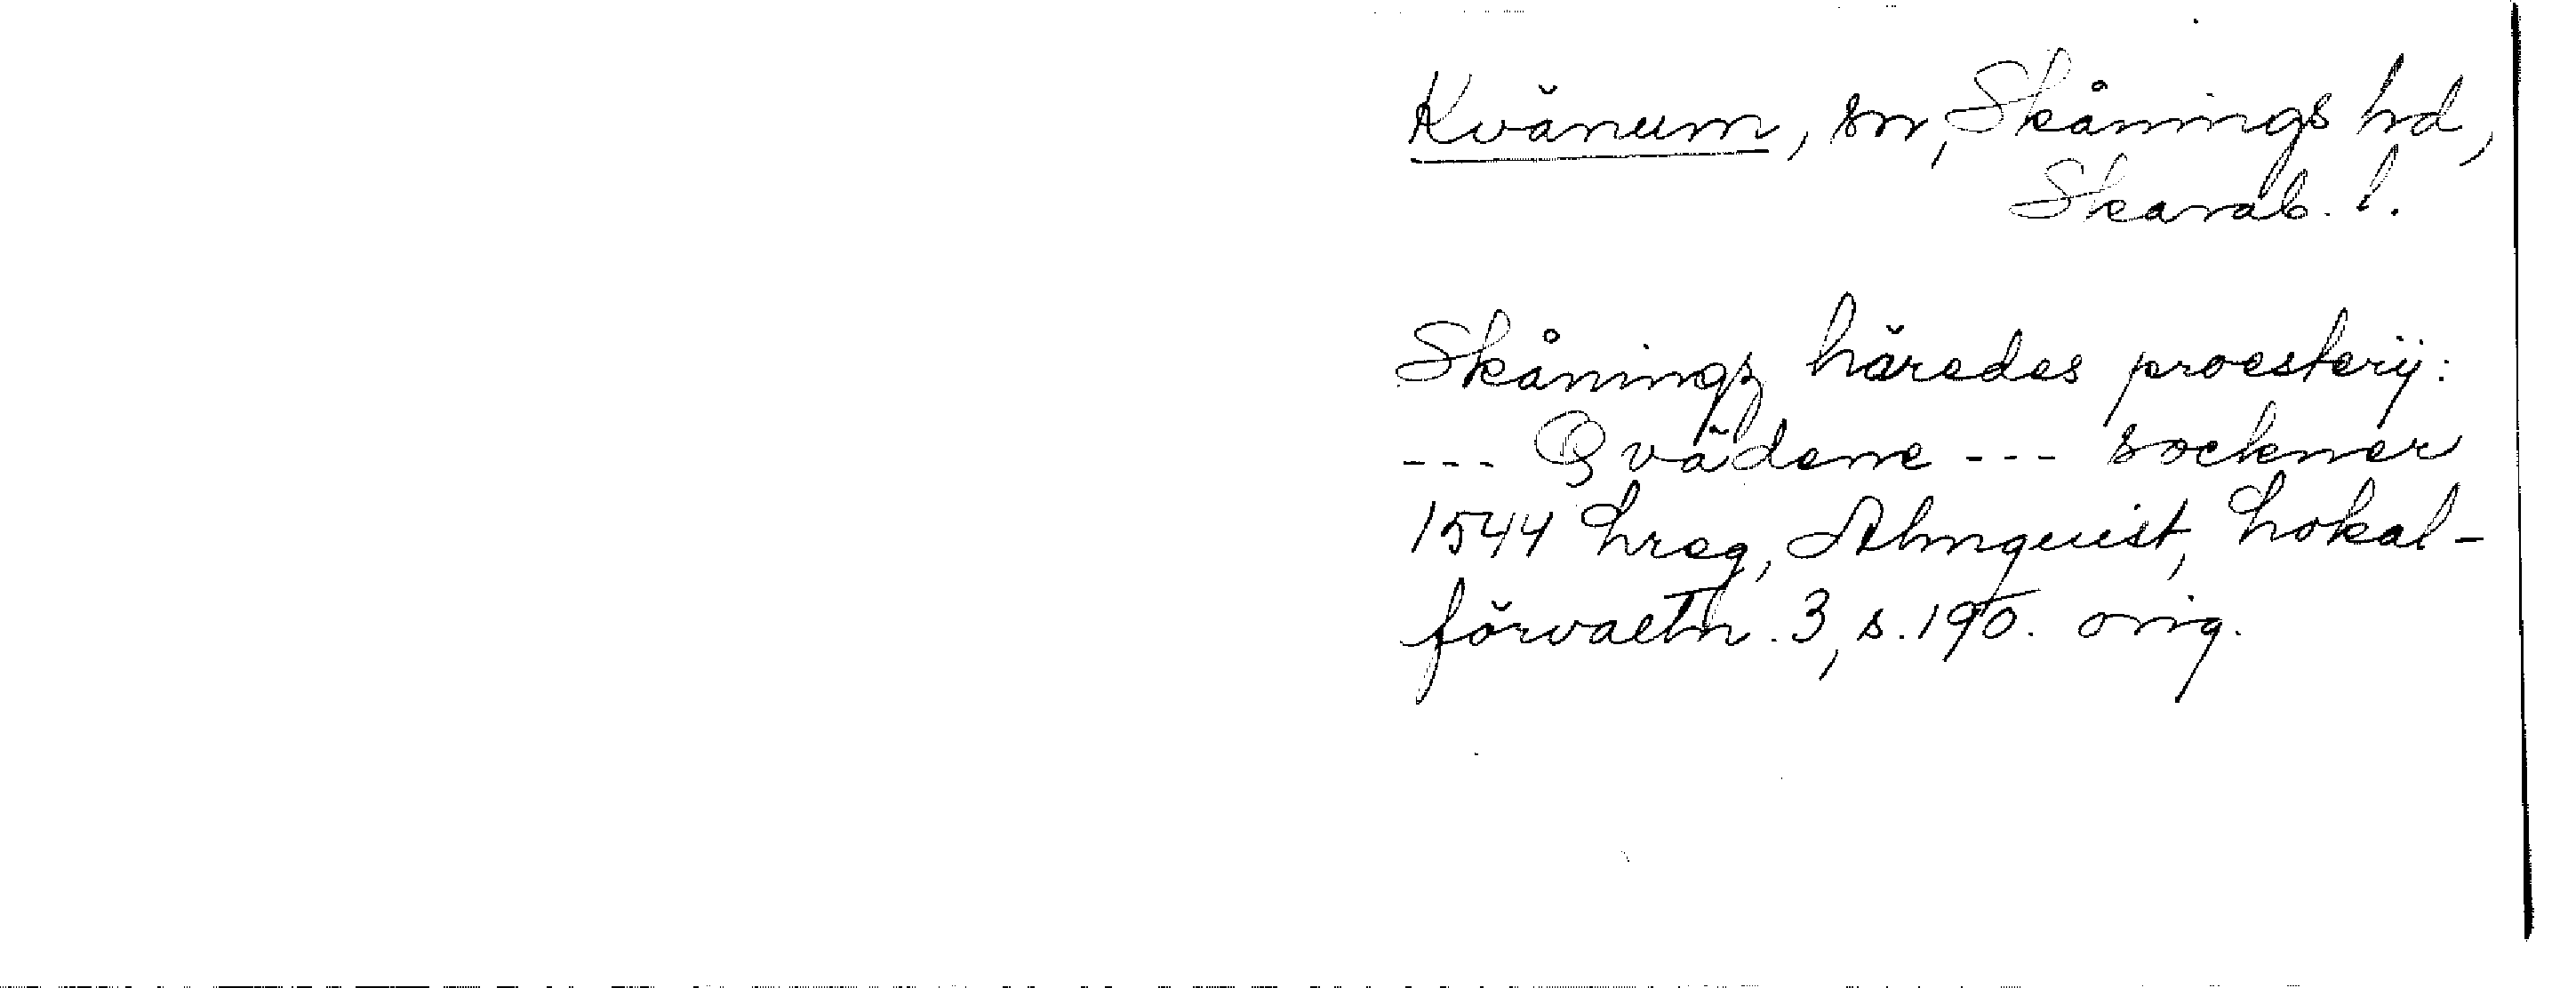 Kvänum, sn, Skånings hd,
Skarab. l.
Skåningz häredes proesterij:
--- Qvädene --- sockner
1544 hreg, Almquist, Lokal-
förvaltn. 3, s. 190. orig.